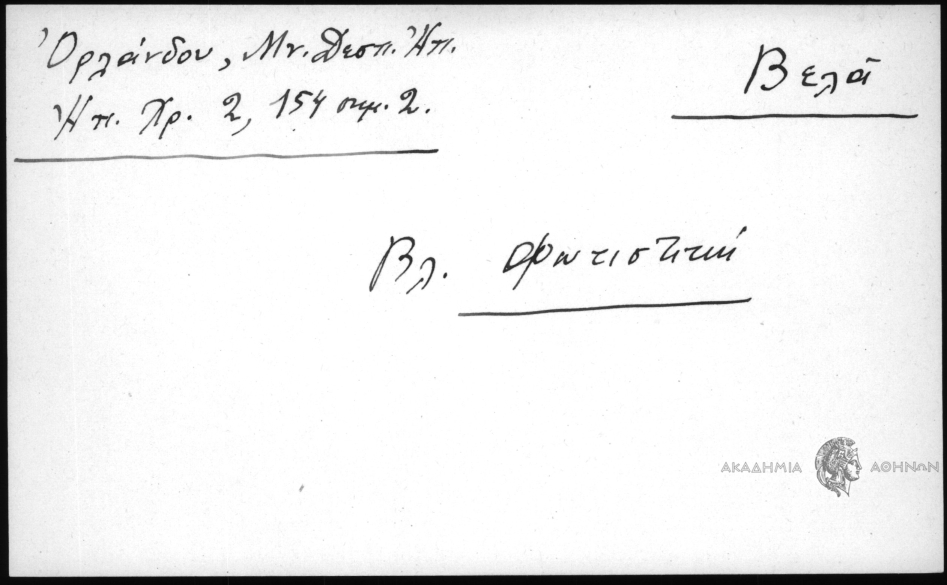 Ὀρλάνδου, Μν. Δεσπ. Ἠπ.
Ἠπ. Χρ. 2, 154 σημ. 2.
Βελᾶ
Βλ. Φωτιστική
ΑΚΑΔΗΜΙΑ ΑΘΗΝΩΝ